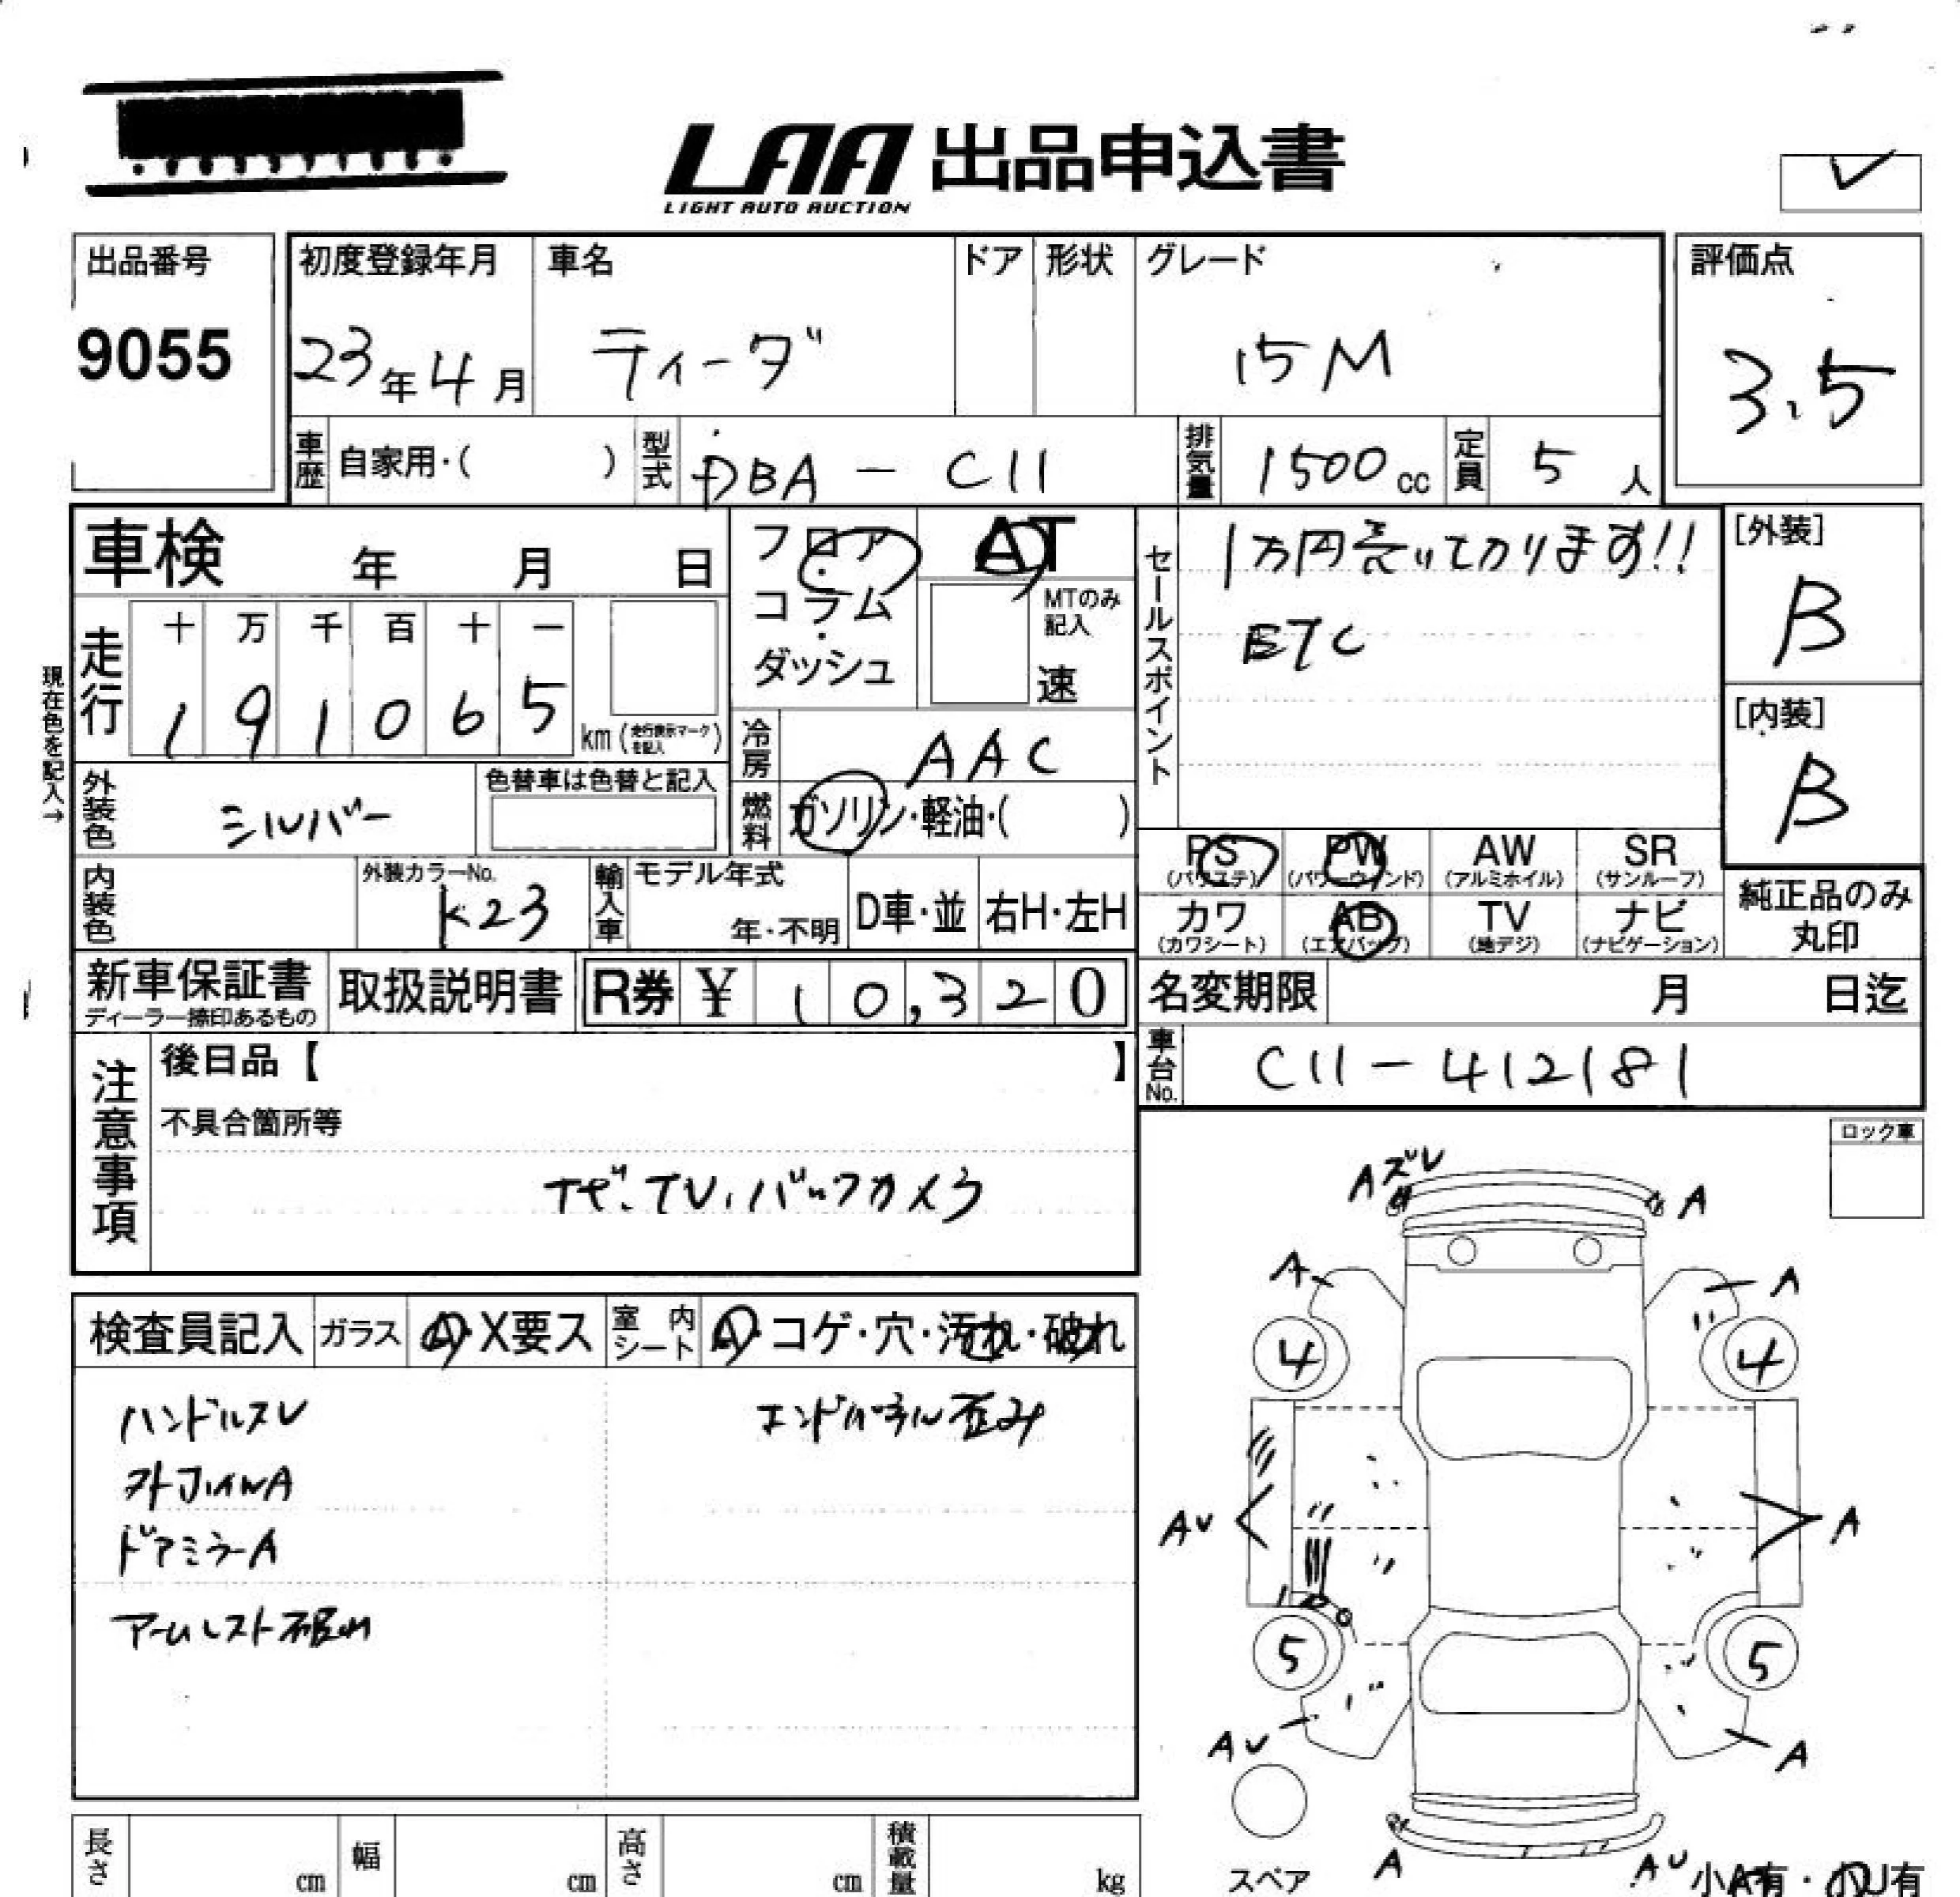 LAA 出品申込書
LIGHT AUTO AUCTION
出品番号
9055
初度登録年月
23年4月
車名
ティーダ
ドア
形状
グレード
15M
評価点
3.5
車歴
自家用・( )
型式
DBA - C11
排気量
1500cc
定員
5人
車検 年 月 日
フロア・コラム・ダッシュ
AT
MTのみ記入
速
セールスポイント
1万円売ってかります!!
ETC
[外装]
B
[内装]
B
現在色を記入→
走行
十 万 千 百 十 一
1 9 1 0 6 5
km (走行表示マークを記入)
冷房
AAC
燃料
ガソリン・軽油・( )
外装色
シルバー
色替車は色替と記入
内装色
外装カラーNo.
K23
輸入車
モデル年式
年・不明
D車・並
右H・左H
PS (パワステ)
PW (パワーウインド)
AW (アルミホイル)
SR (サンルーフ)
カワ (カワシート)
AB (エアバッグ)
TV (地デジ)
ナビ (ナビゲーション)
純正品のみ丸印
新車保証書
ディーラー捺印あるもの
取扱説明書
R券 ¥ 10,320
名変期限 月 日迄
車台No.
C11-412181
注意事項
後日品【 】
不具合箇所等
ナビ、TV、バックカメラ
ロック車
検査員記入
ガラス
A・X要ス
室内シート
A・コゲ・穴・汚れ・破れ
ハンドルスレ
エンドパネル歪み
ドアミラーA
アームレスト破れ
Aズレ
A
A
A
4
4
AU
A
5
5
AU
A
A
AU
スペア
小A有・小U有
長さ cm
幅 cm
高さ cm
積載量 kg